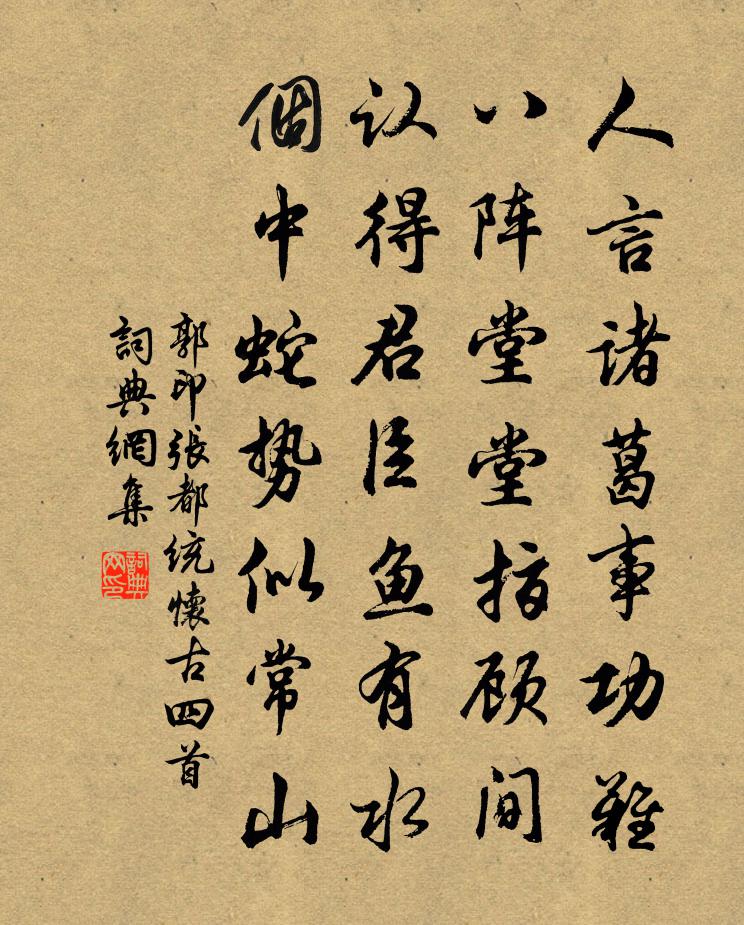 人言诸葛事功难
八阵堂堂指顾间
认得君臣鱼有水
個中蛇势似常山
郭印張都统懷古四首
詞典網集
詞典网印